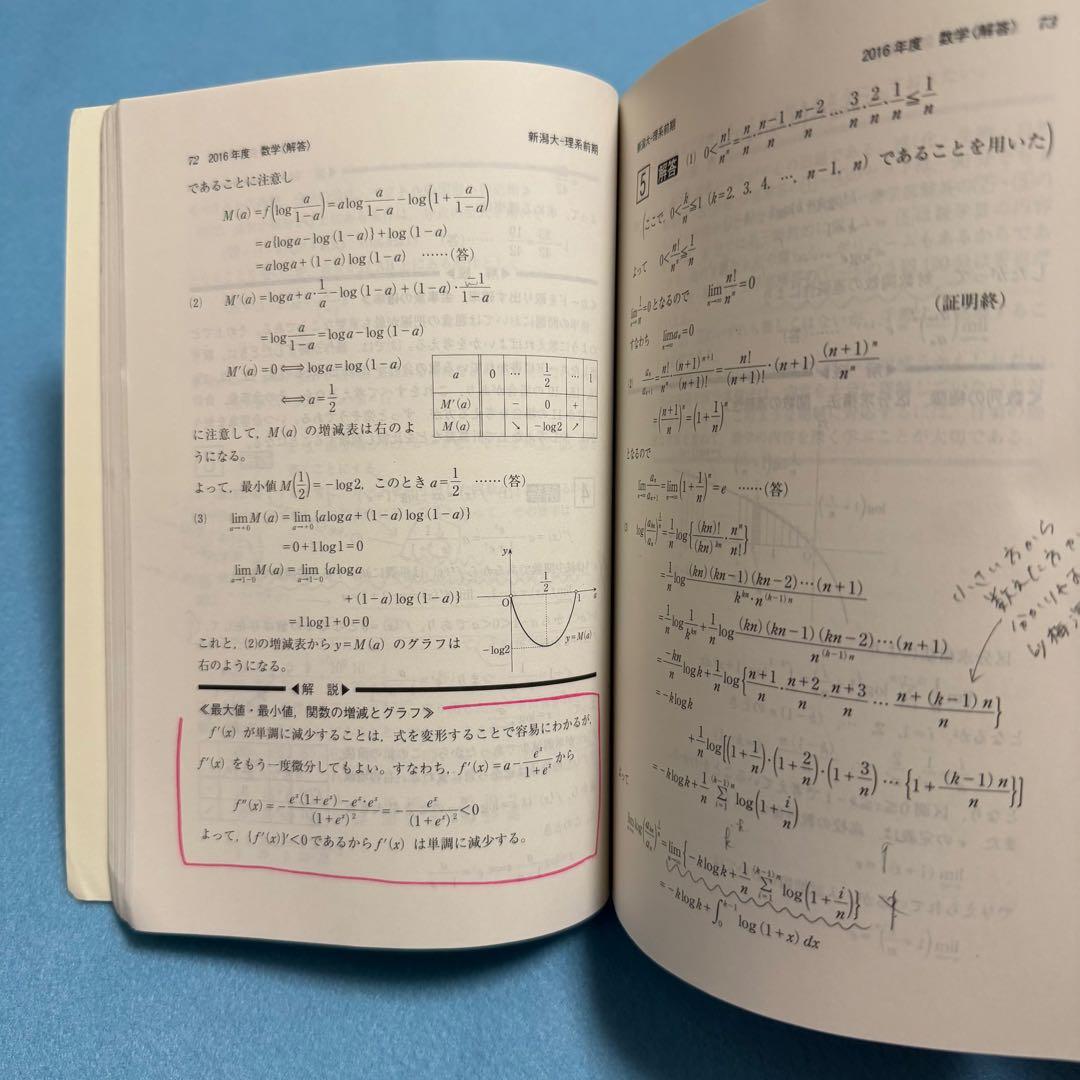 72 2016年度 数学〈解答〉 新潟大-理系前期
であることに注意し
M(a)=f(log a/(1-a))=alog a/(1-a)-log(1+a/(1-a))
=a{loga-log(1-a)}+log(1-a)
=aloga+(1-a)log(1-a) ……(答)
(2) M'(a)=loga+a・1/a-log(1-a)+(1-a)・-1/(1-a)
=log a/(1-a)=loga-log(1-a)
M'(a)=0⟺loga=log(1-a)
⟺a=1/2
a 0 … 1/2 … 1
M'(a) - 0 +
M(a) ↘ -log2 ↗
に注意して,M(a)の増減表は右のよ
うになる。
よって,最小値M(1/2)=-log2,このときa=1/2 ……(答)
(3) lim[a→+0]M(a)=lim[a→+0]{aloga+(1-a)log(1-a)}
=0+1log1=0
lim[a→1-0]M(a)=lim[a→1-0]{aloga
+(1-a)log(1-a)}
=1log1+0=0
これと,(2)の増減表からy=M(a)のグラフは
右のようになる。
y
1/2
O 1
-log2
y=M(a)
◀解 説▶
≪最大値・最小値,関数の増減とグラフ≫
f'(x)が単調に減少することは,式を変形することで容易にわかるが,
f'(x)をもう一度微分してもよい。すなわち,f'(x)=a-e^x/(1+e^x)から
f''(x)=-{e^x(1+e^x)-e^x・e^x}/(1+e^x)^2=-e^x/(1+e^x)^2<0
よって,{f'(x)}'<0であるからf'(x)は単調に減少する。
2016年度 数学〈解答〉 73
新潟大-理系前期
5 解答 (1) 0<n!/n^n=n/n・(n-1)/n・(n-2)/n…3/n・2/n・1/n≦1/n
(ここで,0<k/n≦1(k=2,3,4,…,n-1,n)であることを用いた)
よって 0<n!/n^n≦1/n
lim[n→∞]1/n=0となるので lim[n→∞]n!/n^n=0
すなわち lim[n→∞]a_n=0 (証明終)
(2) a_n/a_{n+1}=n!/n^n・(n+1)^{n+1}/(n+1)!=n!/(n+1)!・(n+1)・(n+1)^n/n^n
=((n+1)/n)^n=(1+1/n)^n
となるので
lim[n→∞]a_n/a_{n+1}=lim[n→∞](1+1/n)^n=e ……(答)
log(a_{kn}/a_n)^{1/n}=1/n log{(kn)!/(kn)^{kn}・n^n/n!}
=1/n log (kn)(kn-1)(kn-2)…(n+1)/(k^{kn}・n^{(k-1)n})
=1/n log 1/k^{kn}+1/n log (kn)(kn-1)(kn-2)…(n+1)/n^{(k-1)n}
=-kn/n logk+1/n log{(n+1)/n・(n+2)/n・(n+3)/n…(n+(k-1)n)/n}
=-klogk
+1/n log[(1+1/n)・(1+2/n)・(1+3/n)…{1+(k-1)n/n}]
=-klogk+1/n Σ[i=1→(k-1)n]log(1+i/n)
よって
lim log(a_{kn}/a_n)^{1/n}=lim[n→∞]{-klogk+1/n Σ[i=1→(k-1)n]log(1+i/n)}
=-klogk+∫[0→k-1]log(1+x)dx
小さい方から
数えた方が